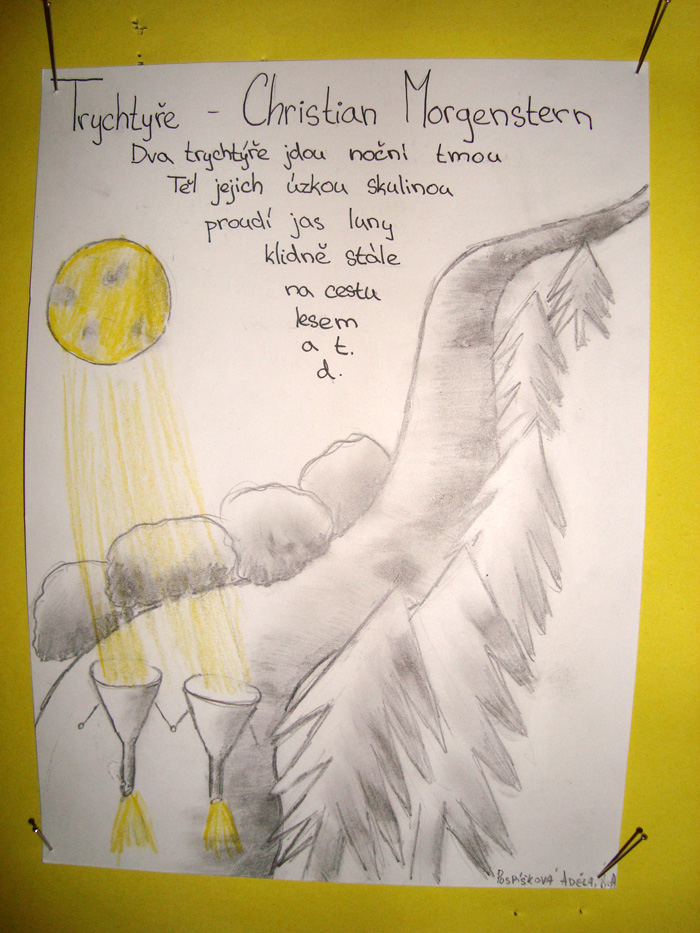 Trychtyře - Christian Morgenstern
Dva trychtýře jdou noční tmou
Těl jejich úzkou skulinou
proudí jas luny
klidně stále
na cestu
lesem
a t.
d.
POSPÍŠKOVÁ ADÉLA,